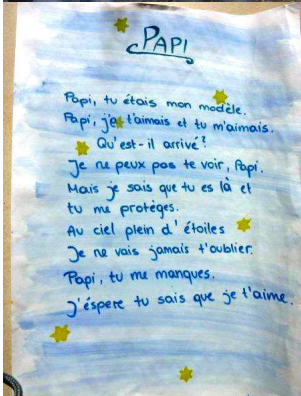 PAPI
Papi, tu étais mon modèle.
Papi, je t'aimais et tu m'aimais.
Qu'est-il arrivé ?
Je ne peux pas te voir, Papi.
Mais je sais que tu es là et
tu me protèges.
Au ciel plein d'étoiles
Je ne vais jamais t'oublier.
Papi, tu me manques.
J'éspere tu sais que je t'aime.